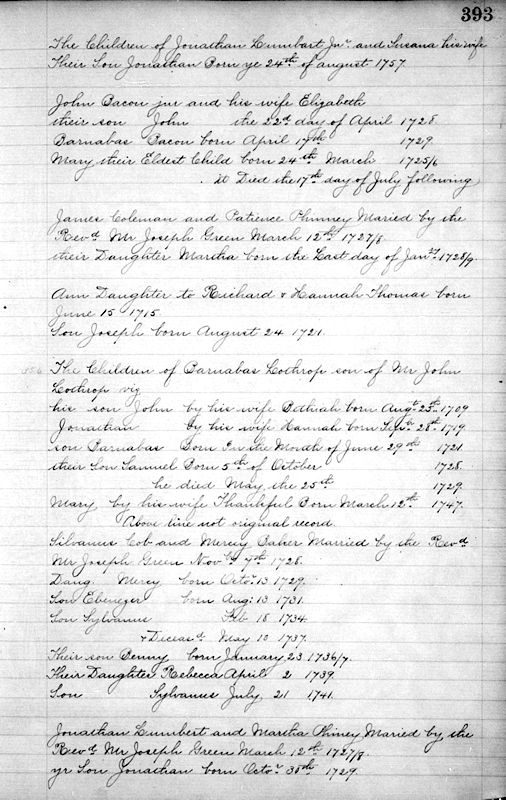 393
The Children of Jonathan Lumbart Jnr. and Susana his wife
Their Son Jonathan Born ye 24th of august 1757.
John Bacon jur and his wife Elizabeth
their son John the 22d day of April 1728.
Barnabas Bacon born April 17th 1729.
Mary their Eldest Child born 24th March 1725/6
It Died the 17th day of July following
James Coleman and Patience Phinney Maried by the
Revd Mr Joseph Green March 12th 1727/8.
their Daughter Martha born the Last day of Jany 1728/9.
Ann Daughter to Richard & Hannah Thomas born
June 15 1715.
Son Joseph born August 24 1721.
The Children of Barnabas Lothrop son of Mr John
Lothrop viz
his son John by his wife Bethiah born Augt 25th 1709
Jonathan by his wife Hannah born Septr 28th 1719.
son Barnabas Born In the Month of June 29th 1721
their Son Samuel Born 5th of October 1728.
he died May the 25th 1729.
Mary by his wife Thankful Born March 12th 1747.
Above line not original record.
Silvanus Cob and Mercy Baker Married by the Revd
Mr Joseph Green Novbr 7th 1728.
Daug. Mercy born Octor 13 1729.
Son Ebenezer born Aug: 13 1731.
Son Sylvanus Feb 18 1734.
& Deceasd May 10 1737.
Their son Benny born January 23 1736/7.
Their Daughter Rebecca April 2 1739.
Son Sylvanus July 21 1741.
Jonathan Lumbert and Martha Phiney Maried by the
Revd Mr Joseph Green March 12th 1727/8.
yr Son Jonathan born Octor 30th 1729.